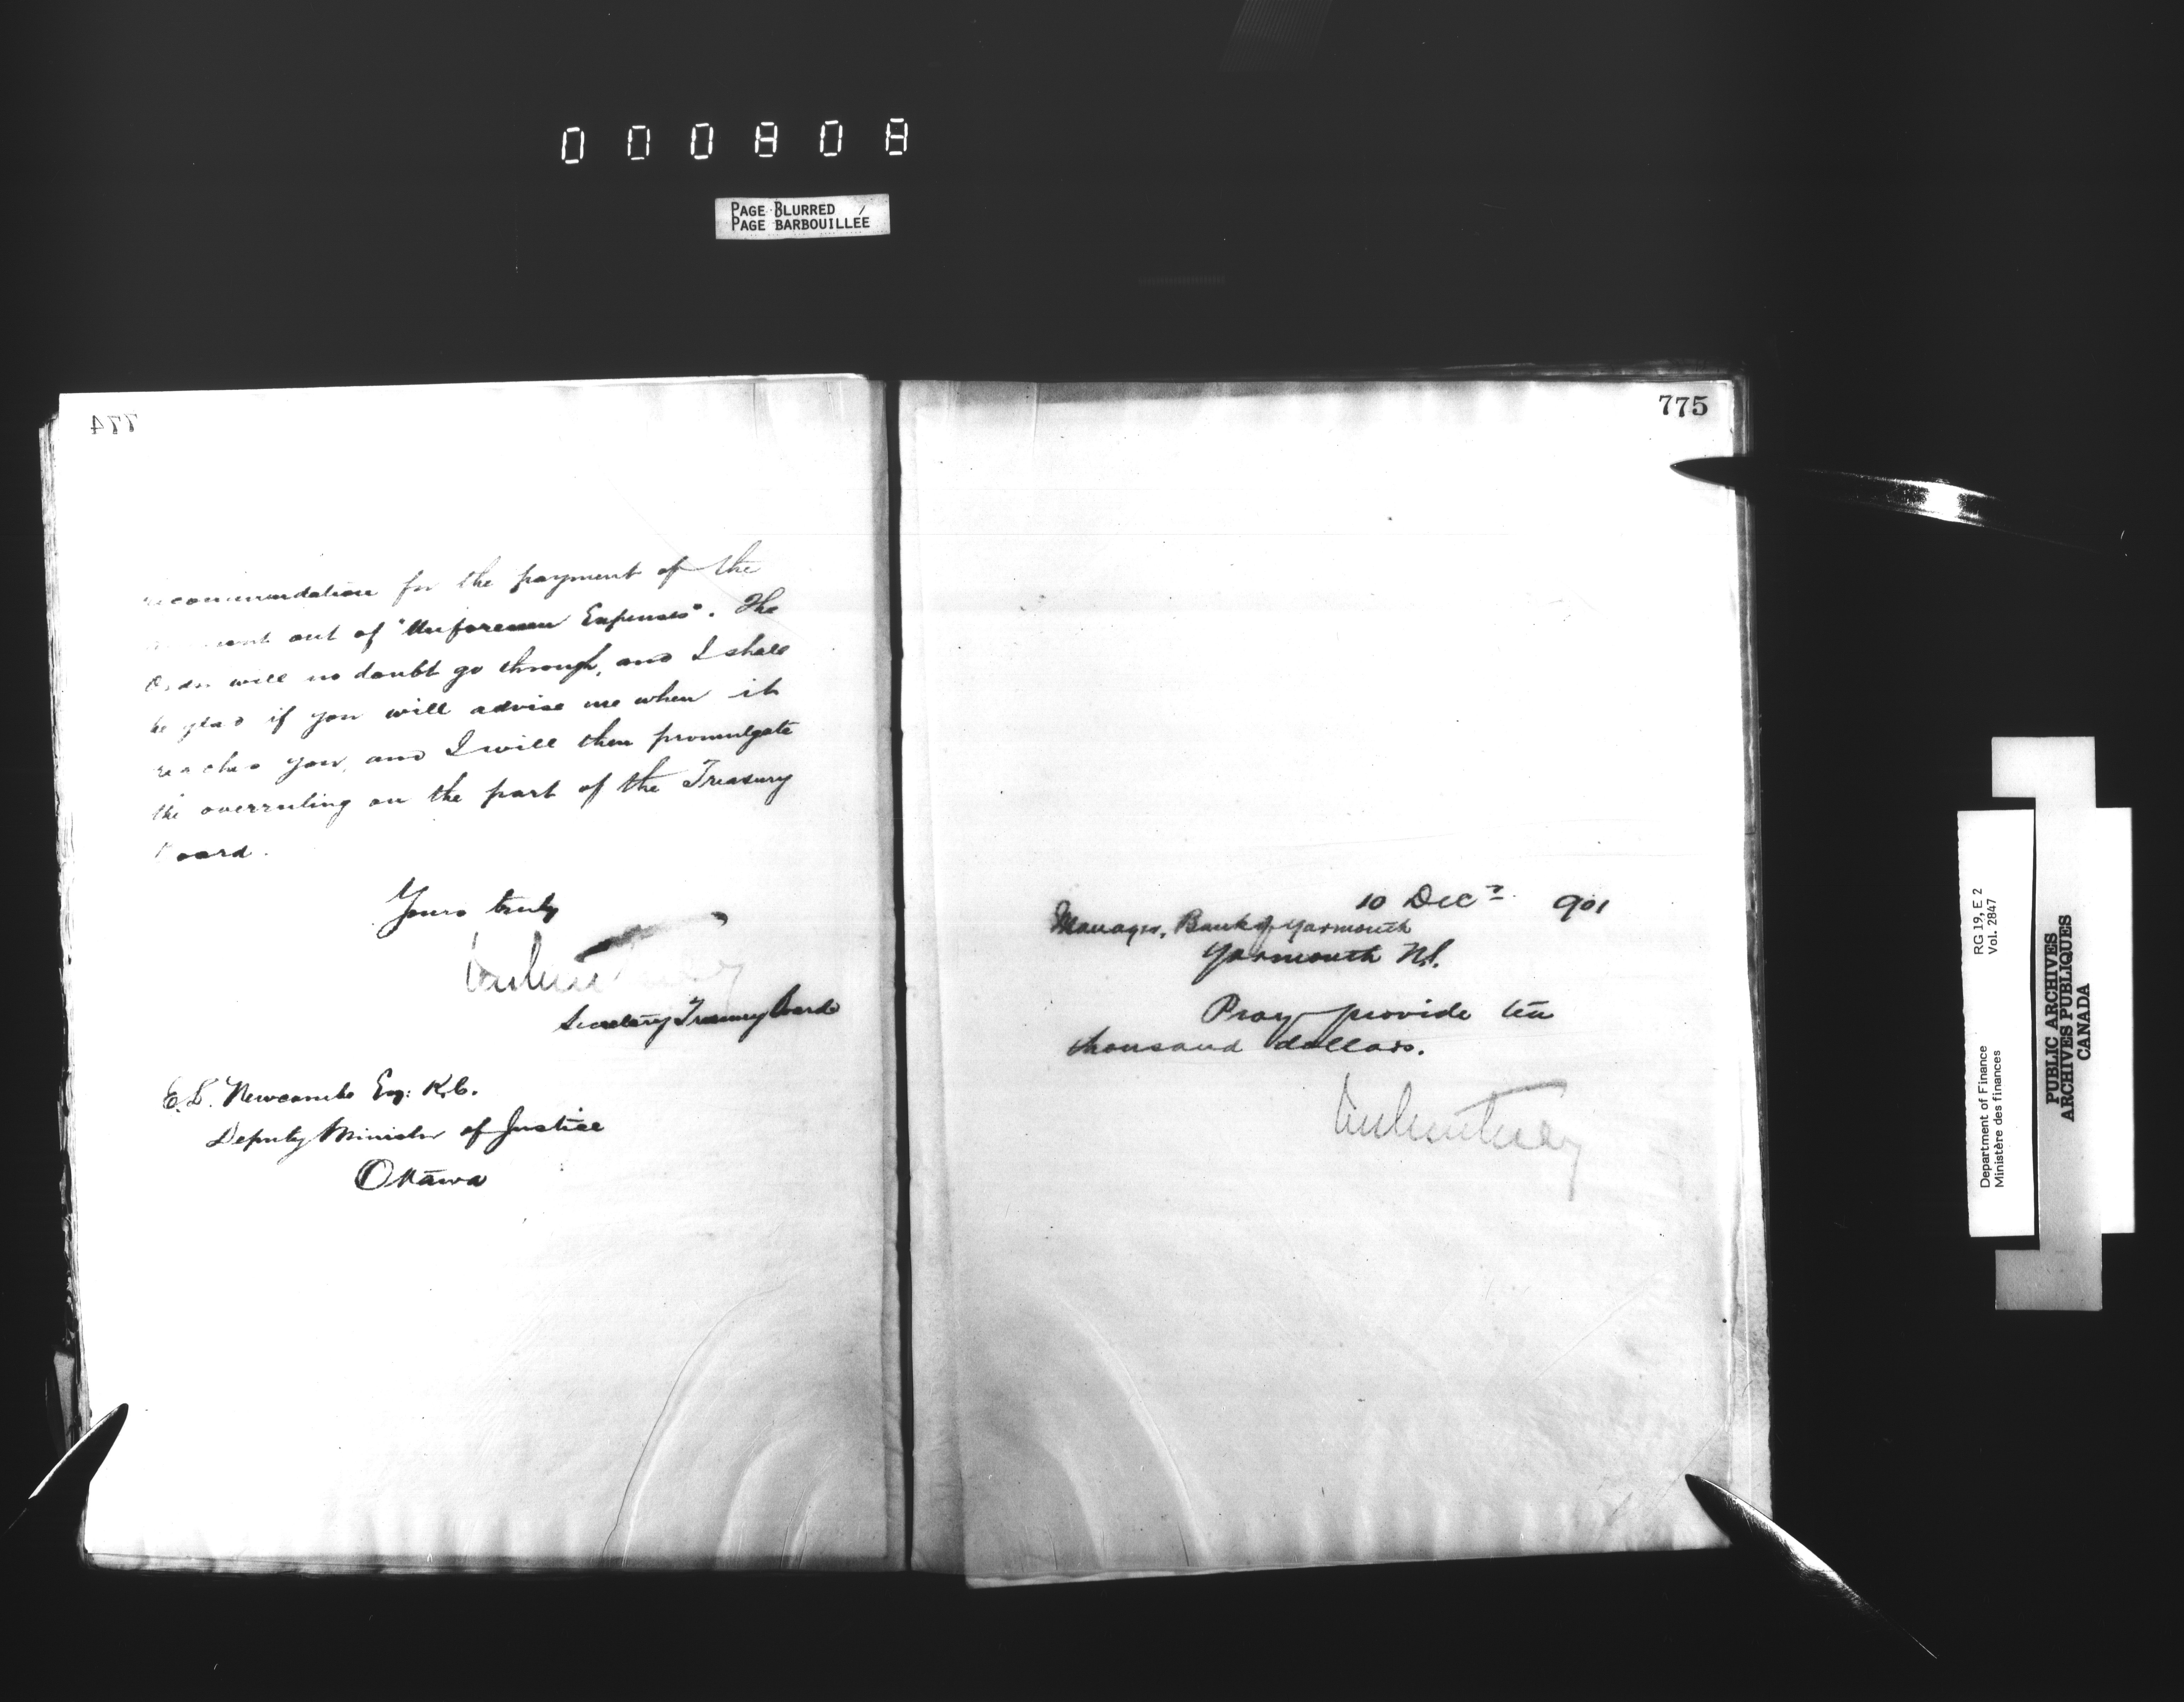 000808
PAGE BLURRED
PAGE BARBOUILLÉE
774
recommendation for the payment of the
out of "Unforeseen Expenses". The
Order will no doubt go through, and I shall
be glad if you will advise me when it
reaches you, and I will then promulgate
the overruling on the part of the Treasury
Board.
Yours truly
Secretary Treasury Board
E. L. Newcombe Esq: K.C.
Deputy Minister of Justice
Ottawa
775
10 Decr. 901
Manager, Bank of Yarmouth
Yarmouth N.S.
Pray provide ten
thousand dollars.
RG 19, E 2
Vol. 2847
Department of Finance
Ministère des finances
PUBLIC ARCHIVES
ARCHIVES PUBLIQUES
CANADA